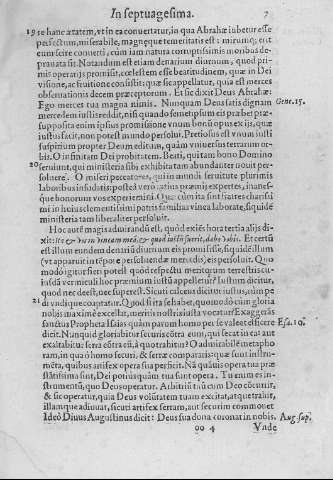 In septuagesima. 7
19 se hanc ætatem, vt in ea conuertatur, in qua Abrahæ iubetur esse
perfectum, miserabile, magnæque temeritatis est: mirum
eum scire conuerti, cùm iam natura corruptissimis moribus de-
prauata sit. Notandum est etiam denarium diurnum, quod pri-
mis operarijs promisit, cœlestem esse beatitudinem, quæ in Dei
visione, ac fruitione consistit: quæ sic appellatur, quia est merces
obseruationis decem præceptorum. Et sic dixit Deus Abrahæ:
Ego merces tua magna nimis. Nunquam Deus satis dignam Gene. 15.
mercedem iustis reddit, nisi quando semetipsum eis præbet: præ-
supposita enim ipsius promissione vnum bonum opus exijt, quæ
iustus facit, non potest mundo persolui. Pretiosius est vnum iusti
suspirium propter Deum editum, quàm vniuersus terrarum or-
bis. O infinitam Dei probitatem. Beati, qui tam bono Domino
20 seruiunt, qui ministeria sibi exhibita tam abundanter nouit per-
soluere. O miseri peccatores, qui in mundi seruitute plurimis
laboribus insudatis: postea verò istius præmij expertes, inanes-
que bonorum vos experiemini. Quæ cùm ita sint fratres charissi-
mi in huius clementissimi patris familias vinea laborate, siquidé
ministeria tam liberaliter persoluit.
Hoc autẽ magis admirandũ est, quòd exiẽs hora tertia alijs di-
xit: Ite & vos in vineam meã, & quod iustũ fuerit, dabo vobis. Et certũ
est illum eundem denariũ diurnum eis promisisse, siquidẽ illum
(vt apparuit in tẽpore persoluendæ mercedis) eis persoluit. Quo
modò igitur fieri potest quòd respectu meritorum terrestris cu-
iusdã vermiculi hoc præmium iustũ appelletur? Iustum dicitur,
quod nec deest, nec superest. Sicuti calceus dicitur iustus, si
21 di vndique coaptatur. Quòd si ita se habet, quomodò cùm gloria
nobis maximè excellat, meritis nostris iusta vocatur? Exaggerãs
sanctus Propheta Isaias quàm parum homo per se valeat efficere Esa. 10.
dicit. Nunquid gloriabitur securis cõtra eum, qui secat in ea? aut
exaltabitur serra cõtra eũ, à quo trahitur? O admirabilẽ metapho
ram, in qua ò homo securi, & serræ compararis: quæ sunt instru-
mẽta, quibus artifex opera sua perficit. Nã quãuis opera tua præ
stãtissima sint, Dei potiùs quàm tua sunt opera. Tu enim es in-
strumentũ, quo Deus operatur. Arbitriũ tuũ cum Deo cõcurrit,
& sic operatur, quia Deus volũtatem tuam excitat, atque trahit,
illamque adiuuat, sicuti artifex serram, aut securim commouet
Ideò Diuus Augustinus dicit: Deus sua dona coronat in nobis. Aug. sup.
oo 4 Vnde